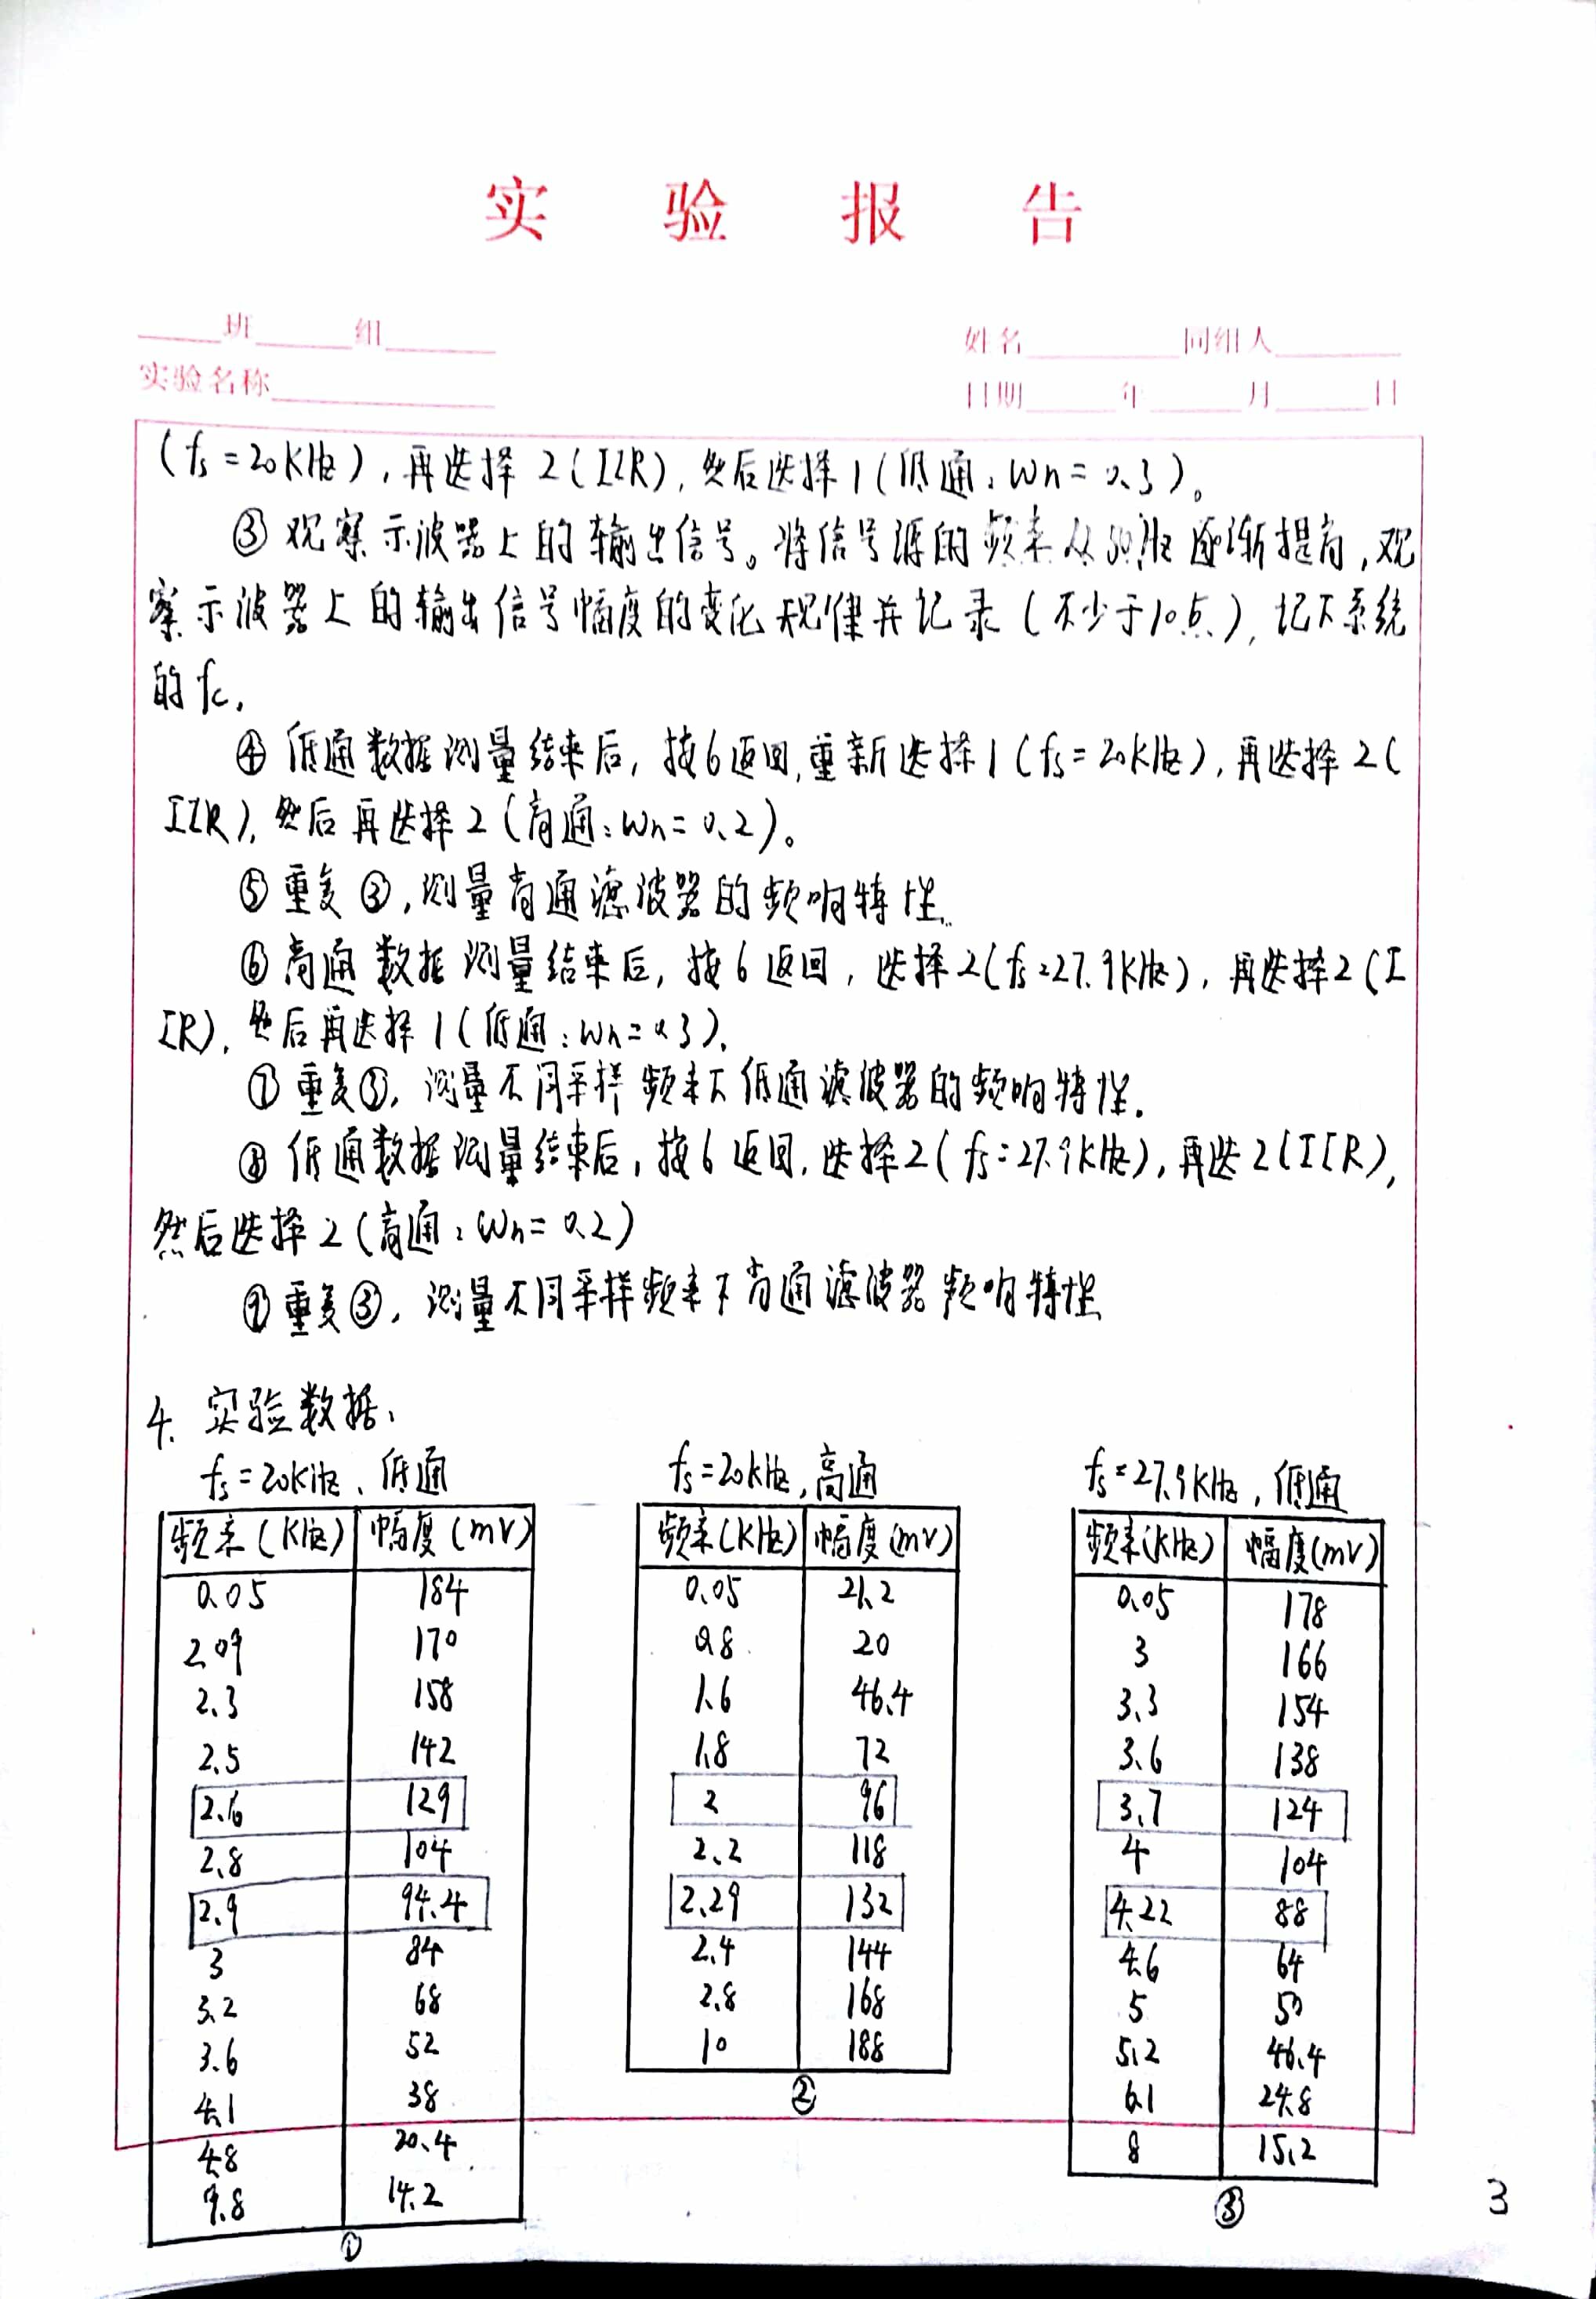 实 验 报 告
班 组 姓名 同组人
实验名称 日期 年 月 日
(fs=20KHz),再选择 2(IIR),然后选择1(低通:Wn=0.3)。
③ 观察示波器上的输出信号。将信号源的频率从50Hz逐渐提高,观
察示波器上的输出信号幅度的变化规律并记录(不少于10点),记下系统
的fc.
④ 低通数据测量结束后,按6返回,重新选择1(fs=20KHz),再选择2(
IIR),然后再选择2(高通:Wn=0.2)。
⑤ 重复③,测量高通滤波器的频响特性.
⑥ 高通数据测量结束后,按6返回,选择2(fs=27.9KHz),再选择2(I
IR),然后再选择1(低通:Wn=0.3).
⑦ 重复③,测量不同采样频率下低通滤波器的频响特性.
⑧ 低通数据测量结束后,按6返回,选择2(fs=27.9KHz),再选2(IIR),
然后选择2(高通:Wn=0.2)
⑨ 重复③,测量不同采样频率下高通滤波器频响特性
4. 实验数据:
fs=20KHz、低通
频率(KHz) 幅度(mV)
0.05 184
2.09 170
2.3 158
2.5 142
2.6 129
2.8 104
2.9 94.4
3 84
3.2 68
3.6 52
4.1 38
4.8 20.4
9.8 14.2
①
fs=20KHz,高通
频率(KHz) 幅度(mV)
0.05 21.2
0.8 20
1.6 46.4
1.8 72
2 96
2.2 118
2.29 132
2.4 144
2.8 168
10 188
②
fs=27.9KHz,低通
频率(KHz) 幅度(mV)
0.05 178
3 166
3.3 154
3.6 138
3.7 124
4 104
4.22 88
4.6 64
5 50
5.2 46.4
6.1 24.8
8 15.2
③
3